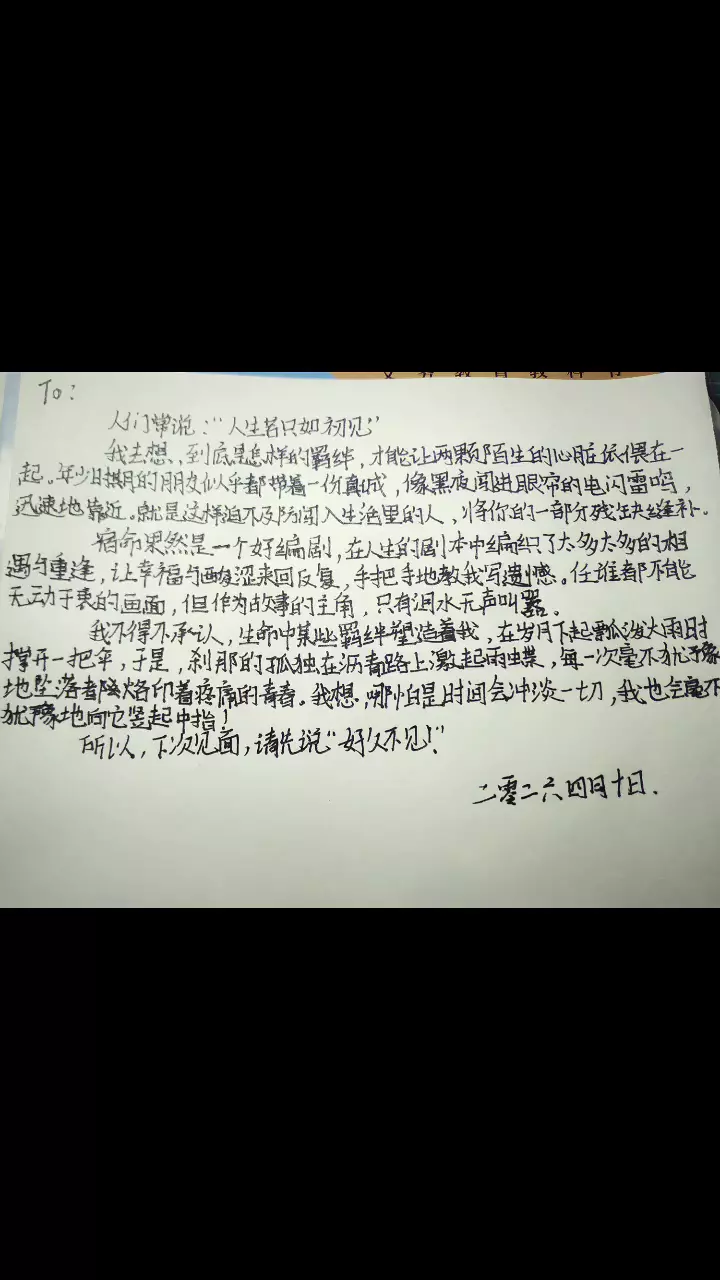 义务教育教科书
To:
人们常说:“人生若只如初见”
我去想,到底是怎样的羁绊,才能让两颗陌生的心脏依偎在一
起。年少时期的朋友似乎都带着一份真诚,像黑夜闯进眼帘的电闪雷鸣,
迅速地靠近。就是这样迫不及防闯入生活里的人,将你的一部分残缺缝补。
宿命果然是一个好编剧,在人生的剧本中编织了太多太多的相
遇与重逢,让幸福与酸涩来回反复,手把手地教我写遗憾。任谁都不能
无动于衷的画面,但作为故事的主角,只有泪水无声叫嚣。
我不得不承认,生命中某些羁绊塑造着我,在岁月下起瓢泼大雨时
撑开一把伞,于是,刹那的孤独在沥青路上激起雨蝶,每一次毫不犹豫
地坠落都烙印着疼痛的青春。我想,哪怕是时间会冲淡一切,我也会毫不
犹豫地向它竖起中指!
所以,下次见面,请先说“好久不见!”
二零二六四月十日.